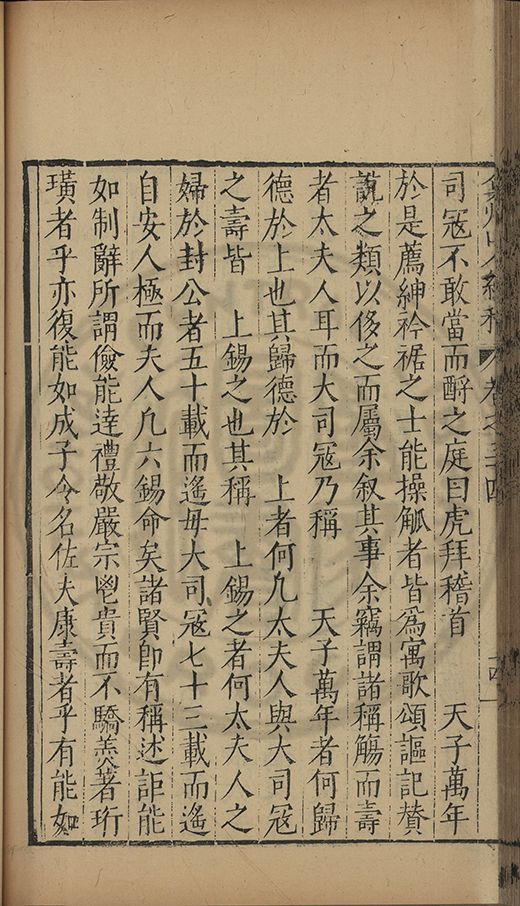 弇州山人續稿 卷之三十四
司寇不敢當而酧之庭曰虎拜稽首　天子萬年
於是薦紳衿裾之士能操觚者皆爲寓歌頌謳記賛
說之類以侈之而屬余叙其事余竊謂諸稱觴而壽
者太夫人耳而大司寇乃稱　天子萬年者何歸
德於上也其歸德於　上者何凢太夫人與大司寇
之壽皆　上錫之也其稱　上錫之者何太夫人之
婦於封公者五十載而遙毋大司寇七十三載而遙
自安人極而夫人凢六錫命矣諸賢卽有稱述詎能
如制辭所謂儉能逹禮敬嚴宗鬯貴而不驕羙著珩
璜者乎亦復能如成子令名佐夫康壽者乎有能如